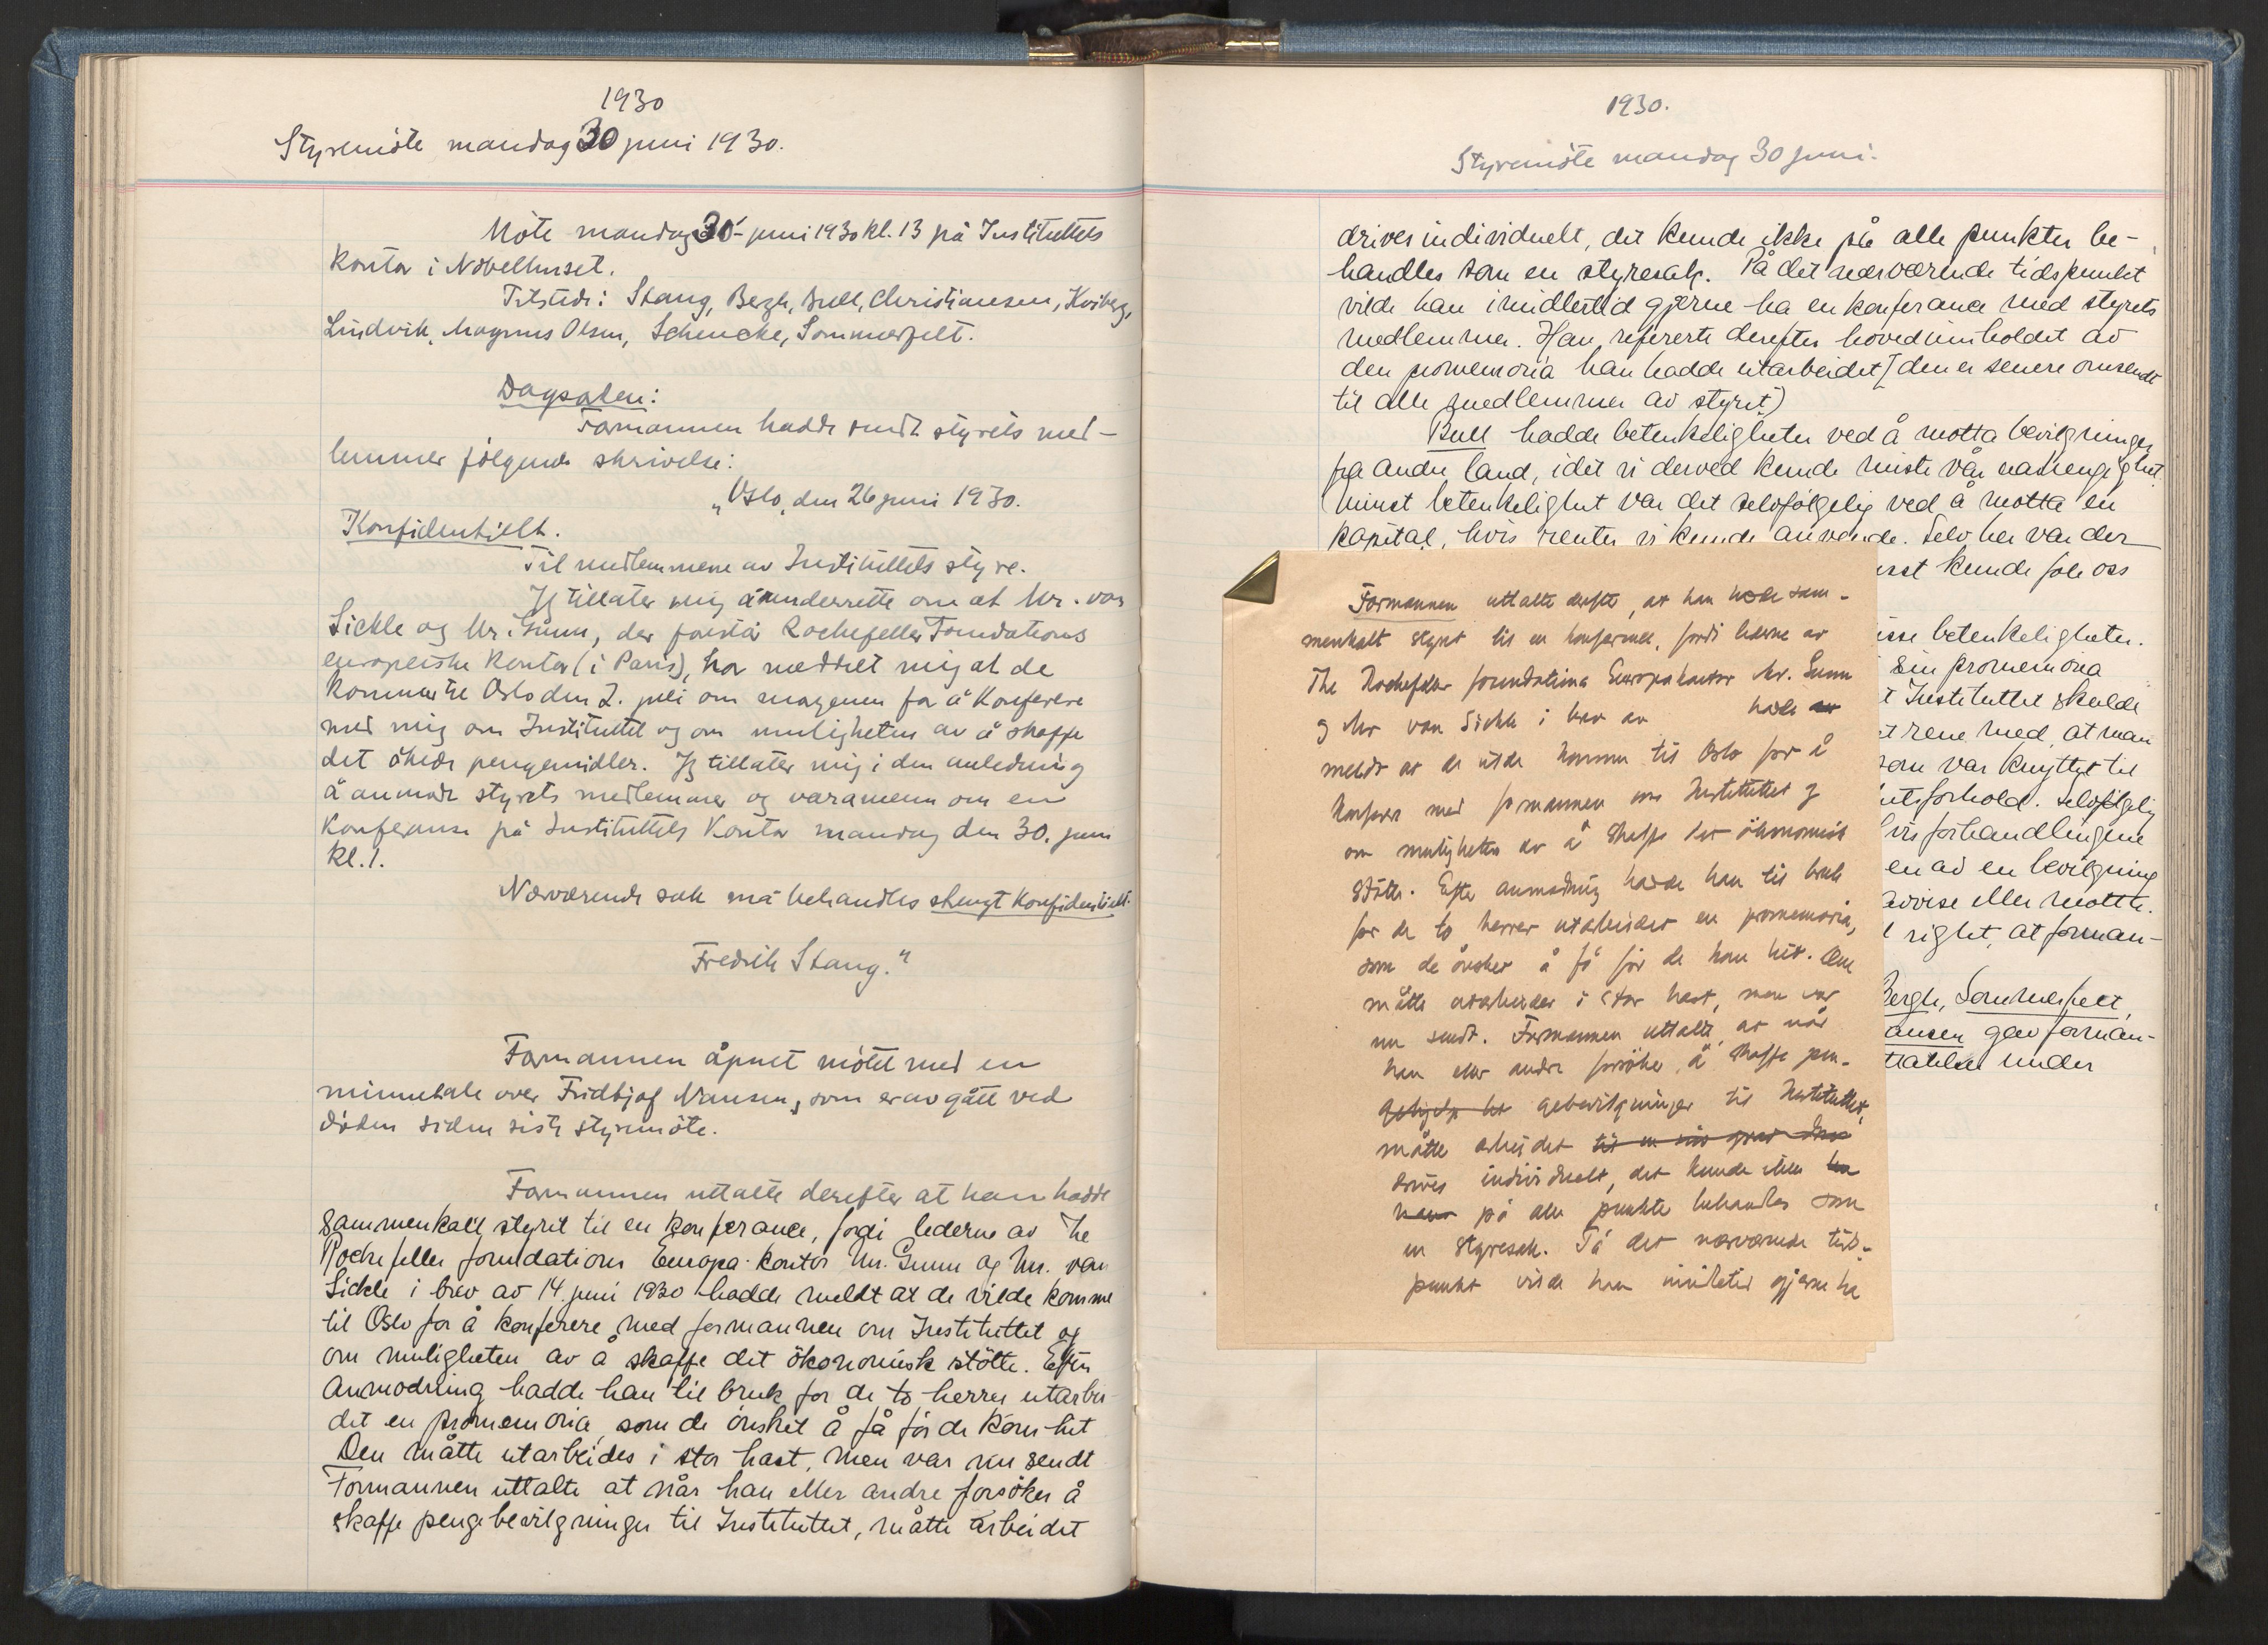 1930
Styremöte mandag 30 juni 1930.
Möte mandag 30 juni 1930 kl. 13 på Instituttets
kontor i Nobelhuset.
Tilstede: Stang, Bergh, Bull, Christiansen, Koiberg,
Lindvik, Magnus Olsen, Schencke, Sommerfelt.
Dagsorden:
Formannen hadde sendt styrets med-
lemmer følgende skrivelse:
„Oslo, den 26 juni 1930.
Konfidentielt.
Til medlemmene av Instituttets styre.
Jeg tillater mig å underrette om at Mr. van
Sickle og Mr. Gunn, der forestår Rockefeller Foundations
europeiske kontor (i Paris), har meddelt mig at de
kommer til Oslo den 2. juli om morgenen for å konferere
med mig om Instituttet og om muligheten av å skaffe
det økede pengemidler. Jeg tillater mig i den anledning
å anmode styrets medlemmer og varamenn om en
konferanse på Instituttets kontor mandag den 30. juni
kl. 1.
Nærværende sak må behandles strengt konfidentielt.
Fredrik Stang."
Formannen åpnet mötet med en
minnetale over Fridtjof Nansen, som er avgått ved
döden siden siste styremöte.
Formannen uttalte derefter at han hadde
sammenkalt styret til en konferance, fordi lederne av The
Rockefeller foundations Europa-kontor Mr. Gunn og Mr. van
Sickle i brev av 14. juni 1930 hadde meldt at de vilde komme
til Oslo for å konferere med formannen om Instituttet og
om muligheten av å skaffe det ökonomisk stötte. Efter
anmodning hadde han til bruk for de to herrer utarbei-
det en promemoria, som de önsket å få för de kom hit
Den måtte utarbeides i stor hast, men var nu sendt
Formannen uttalte at når han eller andre forsöker å
skaffe pengebevilgninger til Instituttet, måtte arbeidet
1930.
Styremöte mandag 30 juni.
drives individuelt, det kunde ikke på alle punkter be-
handles som en styresak. På det nærværende tidspunkt
vilde han imidlertid gjerne ha en konferance med styrets
medlemmer. Han refererte derefter hovedinnholdet av
den promemoria han hadde utarbeidet (den er senere omsendt
til alle medlemmer av styret)
Bull hadde betenkeligheter ved å motta bevilgninger
fra andre land, idet vi derved kunde miste vår uavhengighet.
Minst betenkelighet var det selvfölgelig ved å motta en
kapital, hvis renter vi kunde anvende. Selv her var der
kunde föle oss
betenkeligheter.
sin promemoria
Instituttet skulde
rene med, at man
som var knyttet til
forhold. Selvfölgelig
hvis forhandlingene
en av en bevilgning
avvise eller motta.
right, at forman-
Bergh, Sommerfelt,
gav forman-
under
Formannen uttalte derefter, at han hadde sam-
menkalt styret til en konferance, fordi lederne av
The Rockefeller foundations Europakontor Mr. Gunn
og Mr van Sickle i brev av hadde
meldt at de vilde komme til Oslo for å
konferere med formannen om Instituttet og
om muligheten av å skaffe det ökonomisk
stötte. Efter anmodning hadde han til bruk
for de to herrer utarbeidet en promemoria,
som de önsker å få för de kom hit. Den
måtte utarbeides i stor hast, men var
nu sendt. Formannen uttalte, at når
han eller andre forsöker å skaffe pen-
gebevilgninger til Instituttet,
måtte arbeidet
drives individuelt, det kunde ikke
på alle punkter behandles som
en styresak. På det nærværende tids-
punkt vilde han imidlertid gjerne ha